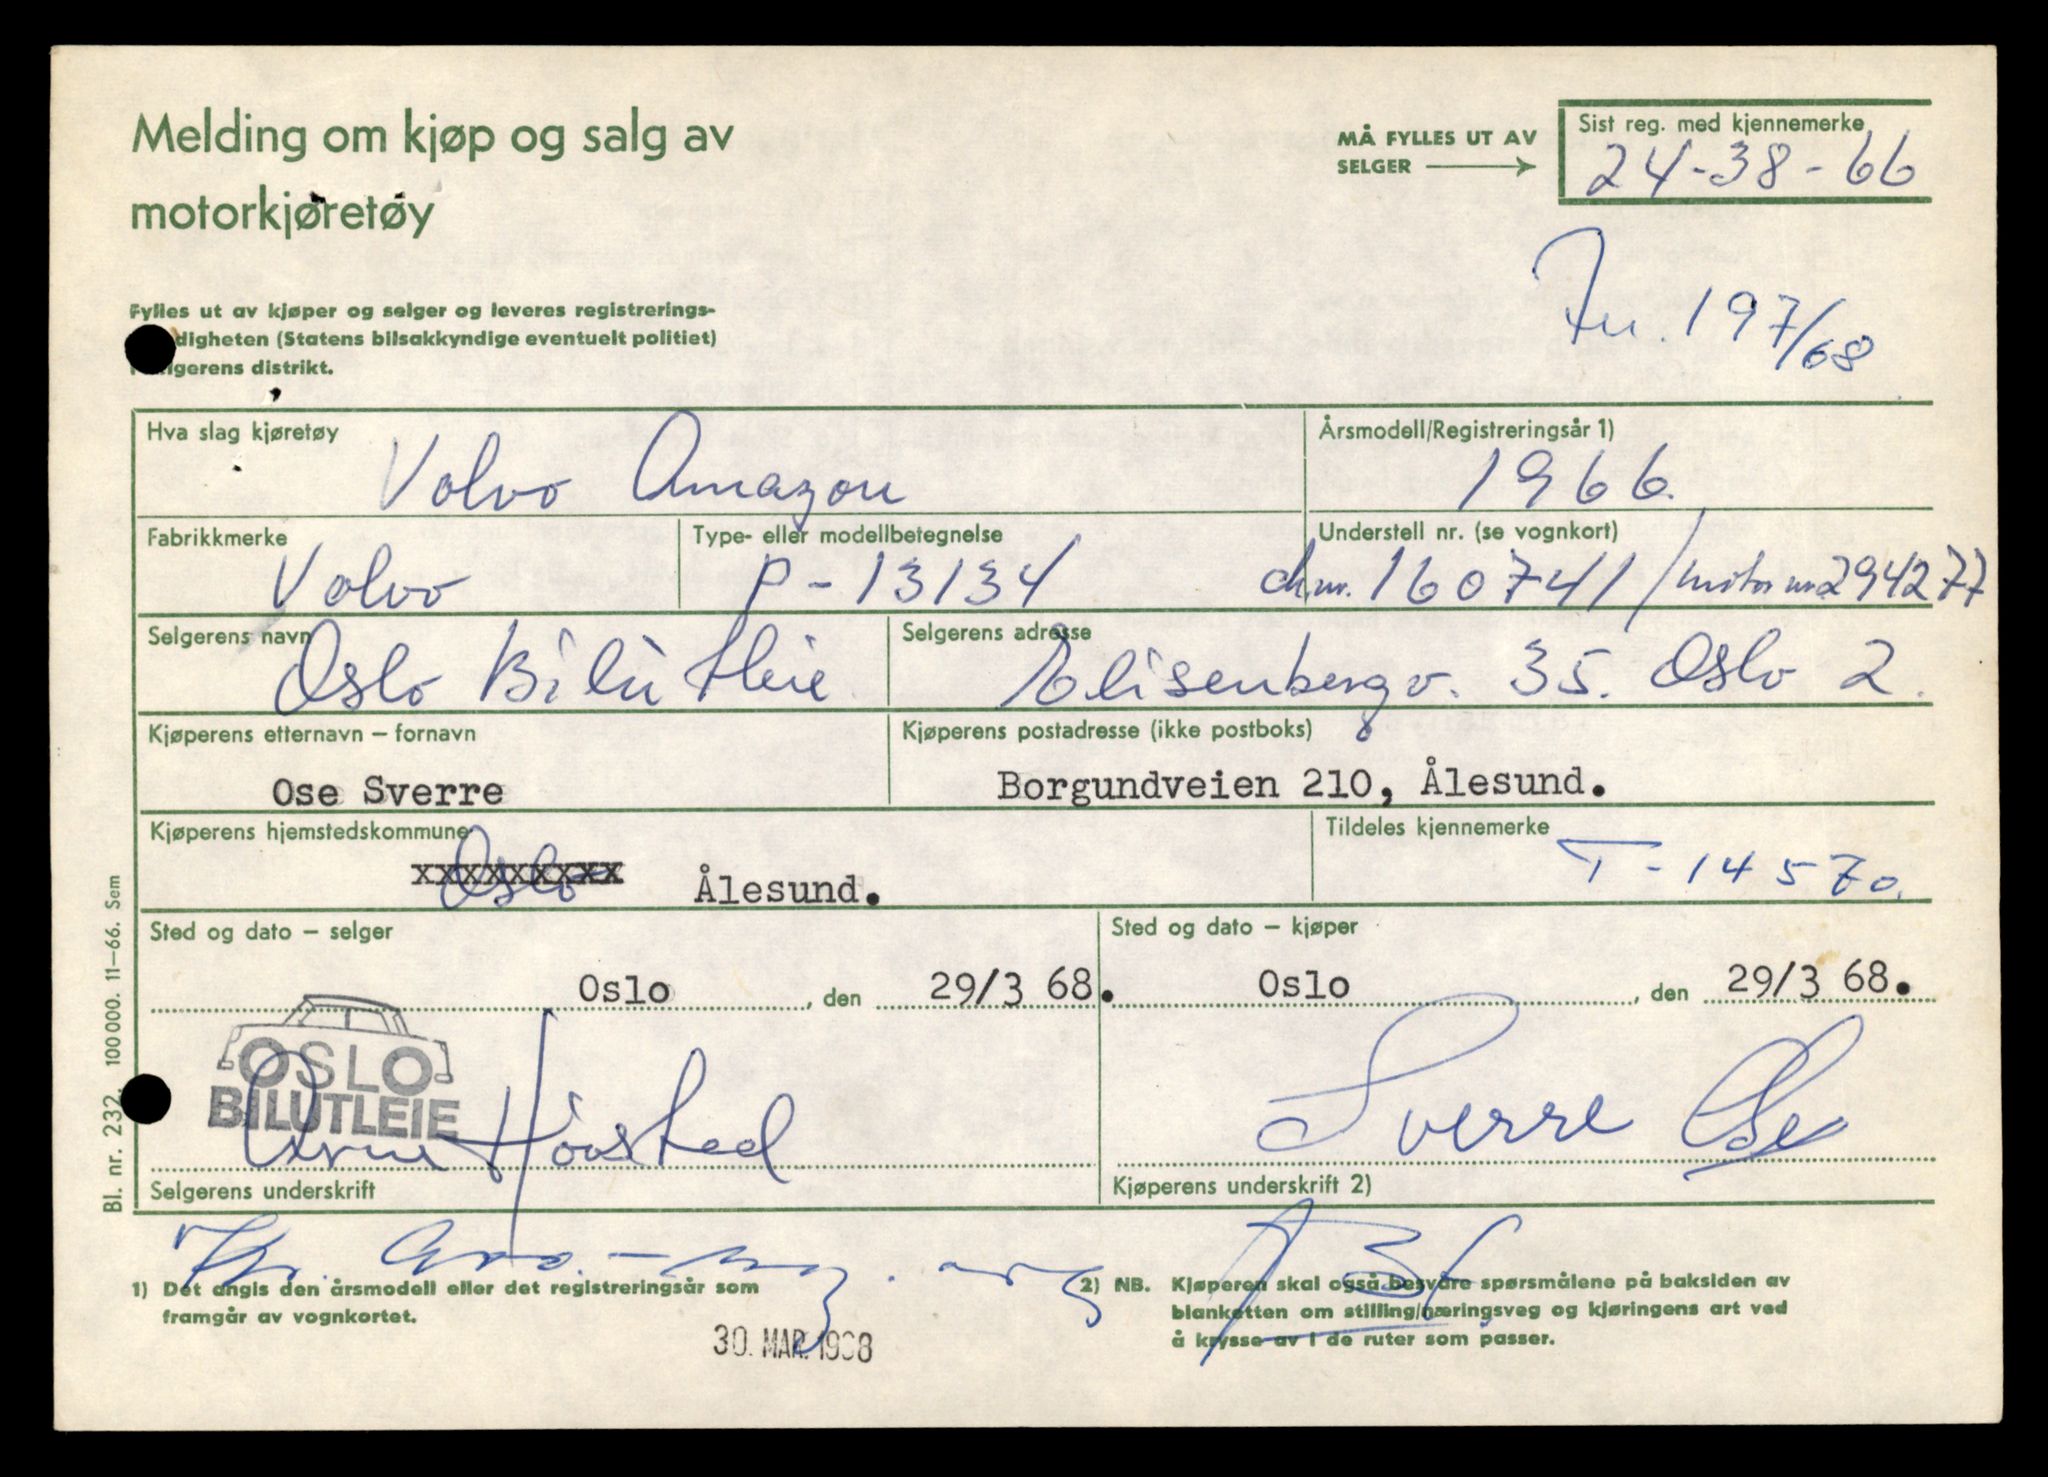 Melding om kjøp og salg av
motorkjøretøy
MÅ FYLLES UT AV
SELGER
Sist reg. med kjennemerke
24-38-66
197/68
Fylles ut av kjøper og selger og leveres registrerings-
digheten (Statens bilsakkyndige eventuelt politiet)
gerens distrikt.
Hva slag kjøretøy
Volvo Amazon
Årsmodell/Registreringsår 1)
1966.
Fabrikkmerke
Volvo
Type- eller modellbetegnelse
P-13134
Understell nr. (se vognkort)
ch.nr. 160741/motor nr. 294277
Selgerens navn
Oslo Bilutleie
Selgerens adresse
Elisenbergv. 35. Oslo 2.
Kjøperens etternavn – fornavn
Ose Sverre
Kjøperens postadresse (ikke postboks)
Borgundveien 210, Ålesund.
Kjøperens hjemstedskommune
Oslo xxxxxxxxx Ålesund.
Tildeles kjennemerke
T-14570.
Sted og dato – selger
Oslo, den 29/3 68.
Sted og dato – kjøper
Oslo, den 29/3 68.
OSLO
BILUTLEIE
Arne Hovsted
Selgerens underskrift
Sverre Ose
Kjøperens underskrift 2)
1) Det angis den årsmodell eller det registreringsår som
framgår av vognkortet.
30. MAR. 1968
2) NB. Kjøperen skal også besvare spørsmålene på baksiden av
blanketten om stilling/næringsveg og kjøringens art ved
å krysse av i de ruter som passer.
Bl. nr. 232. 100 000. 11–66. Sem